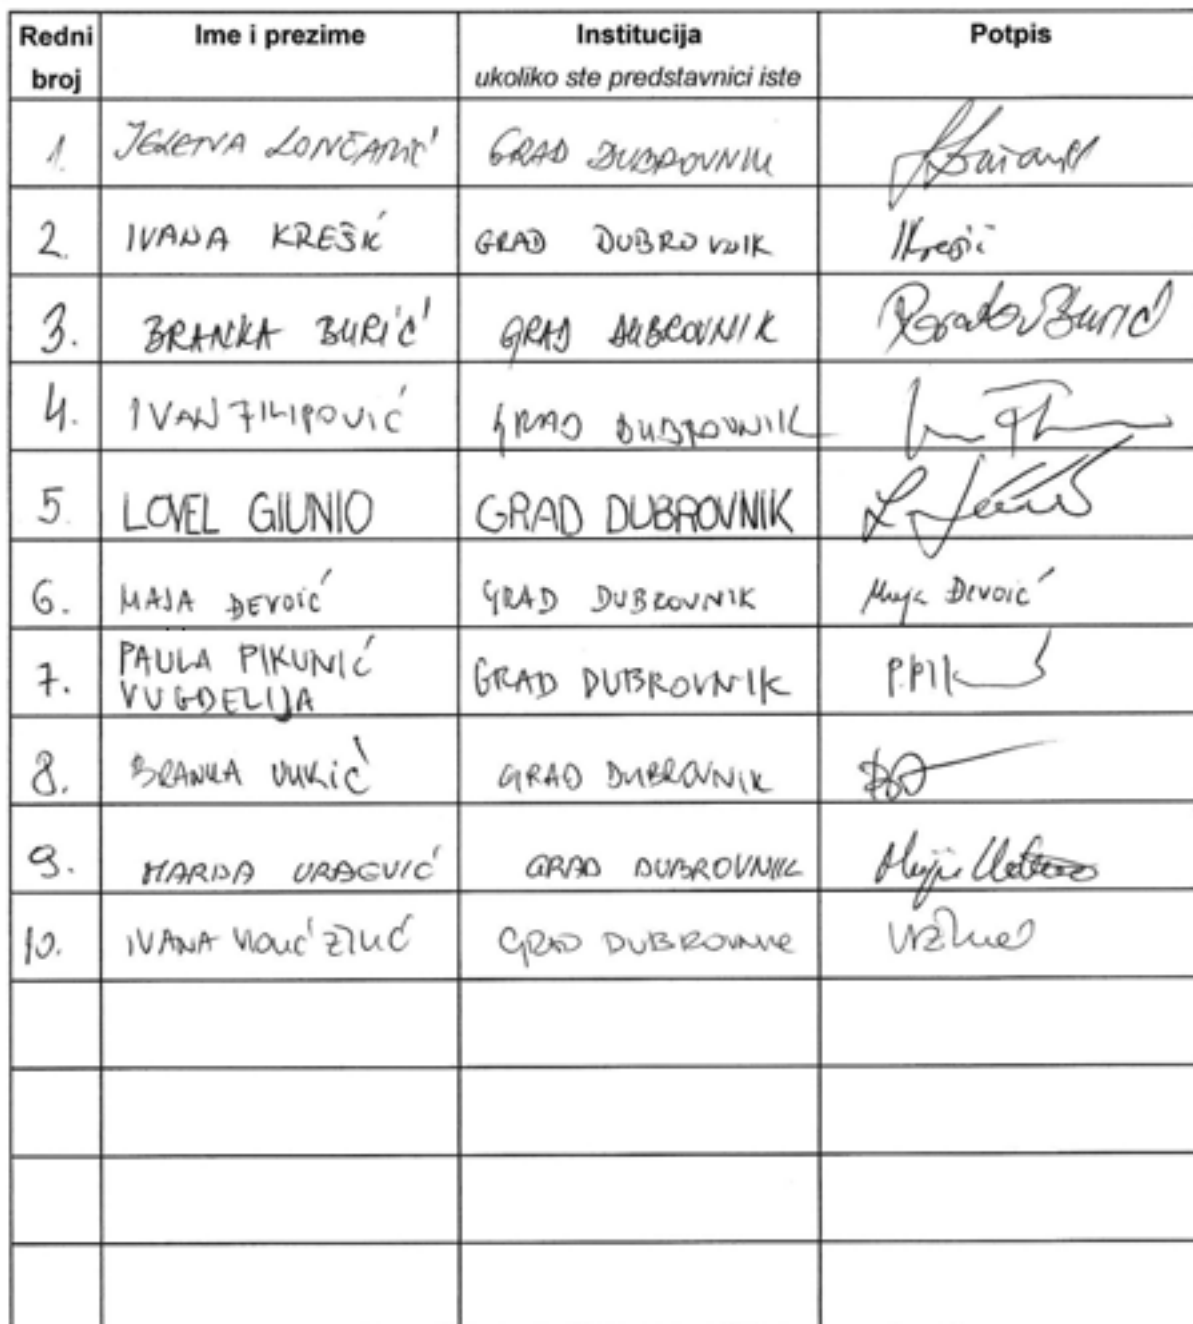 Redni broj Ime i prezime Institucija Potpis
ukoliko ste predstavnici iste
1. JELENA LONČARIĆ GRAD DUBROVNIK
2. IVANA KREŠIĆ GRAD DUBROVNIK IKrešić
3. BRANKA BURIĆ GRAD DUBROVNIK
4. IVAN FILIPOVIĆ GRAD DUBROVNIK
5. LOVEL GIUNIO GRAD DUBROVNIK
6. MAJA ĐEVOIĆ GRAD DUBROVNIK Maja Đevoić
7. PAULA PIKUNIĆ
VUGDELIJA GRAD DUBROVNIK
8. BRANKA VUKIĆ GRAD DUBROVNIK
9. GRAD DUBROVNIK
10. IVANA GRAD DUBROVNIK